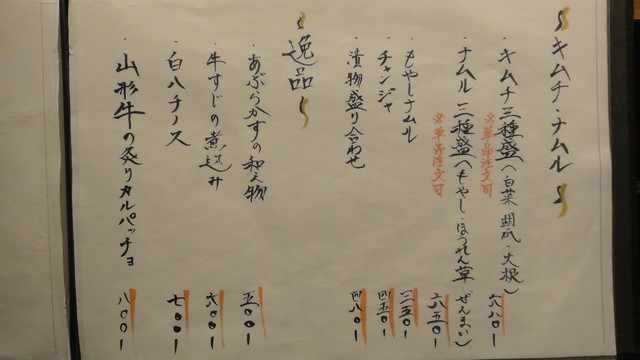 〜キムチ・ナムル〜
・キムチ三種盛(白菜・胡瓜・大根) 六八〇ー
※単品注文可
ナムル三種盛(もやし・ほうれん草・ぜんまい) 六五〇ー
※単品注文可
・もやしナムル 三五〇ー
・チャンジャ 四五〇ー
・漬物盛り合わせ 四八〇ー
〜逸品〜
・あぶらかすの和え物 五〇〇ー
・牛すじの煮込み 六〇〇ー
・白ハチノス 七〇〇ー
・山形牛の炙りカルパッチョ 八〇〇ー